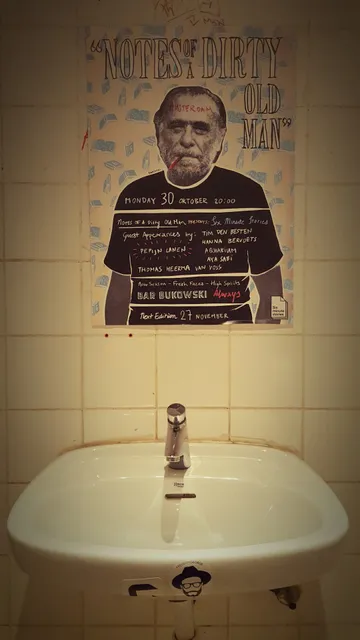 "NOTES OF A DIRTY
OLD
MAN"
AMSTERDAM
MONDAY 30 OKTOBER 20:00
Notes of a Dirty Old Man presents: Six Minute Stories
Guest Appearances by: TIM DEN BESTEN
HANNA BERVOETS
PEPIJN LANEN
AGHARIAM
AYA SABI
THOMAS HEERMA VAN VOSS
New Season - Fresh Faces - High Spirits
BAR BUKOWSKI Always
Next Edition: 27 NOVEMBER